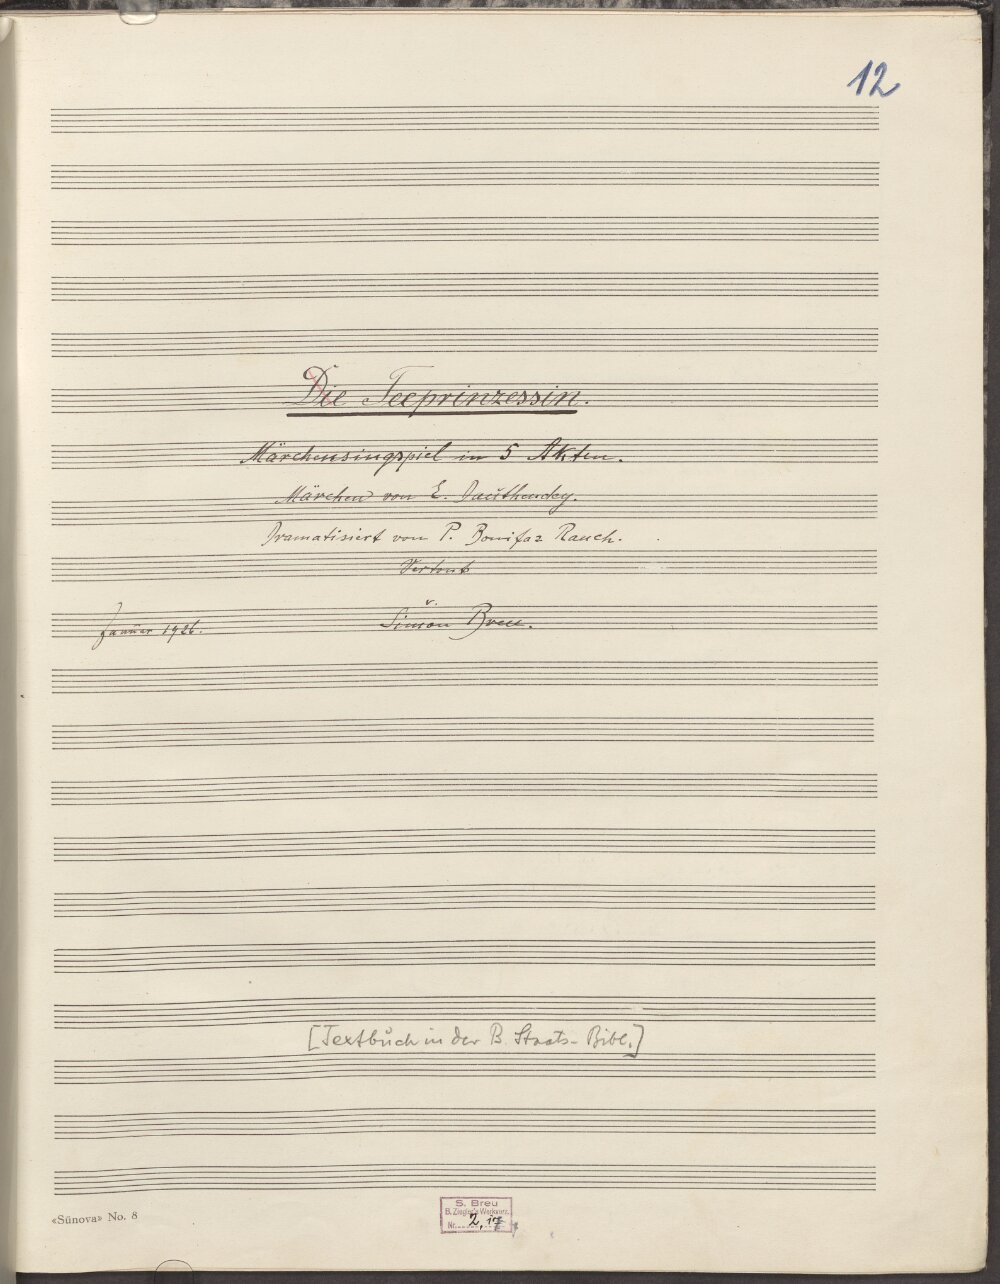 12
Die Teeprinzessin.
Märchensingspiel in 5 Akten.
Märchen von E. Dauthendey.
Dramatisiert von P. Bonifaz Rauch.
Vertont
v.
Januar 1926. Simon Breu.
[Textbuch in der B. Staats-Bibl.]
«Sünova» No. 8
S. Breu
B. Ziegler's Werkverz.
Nr. 2,